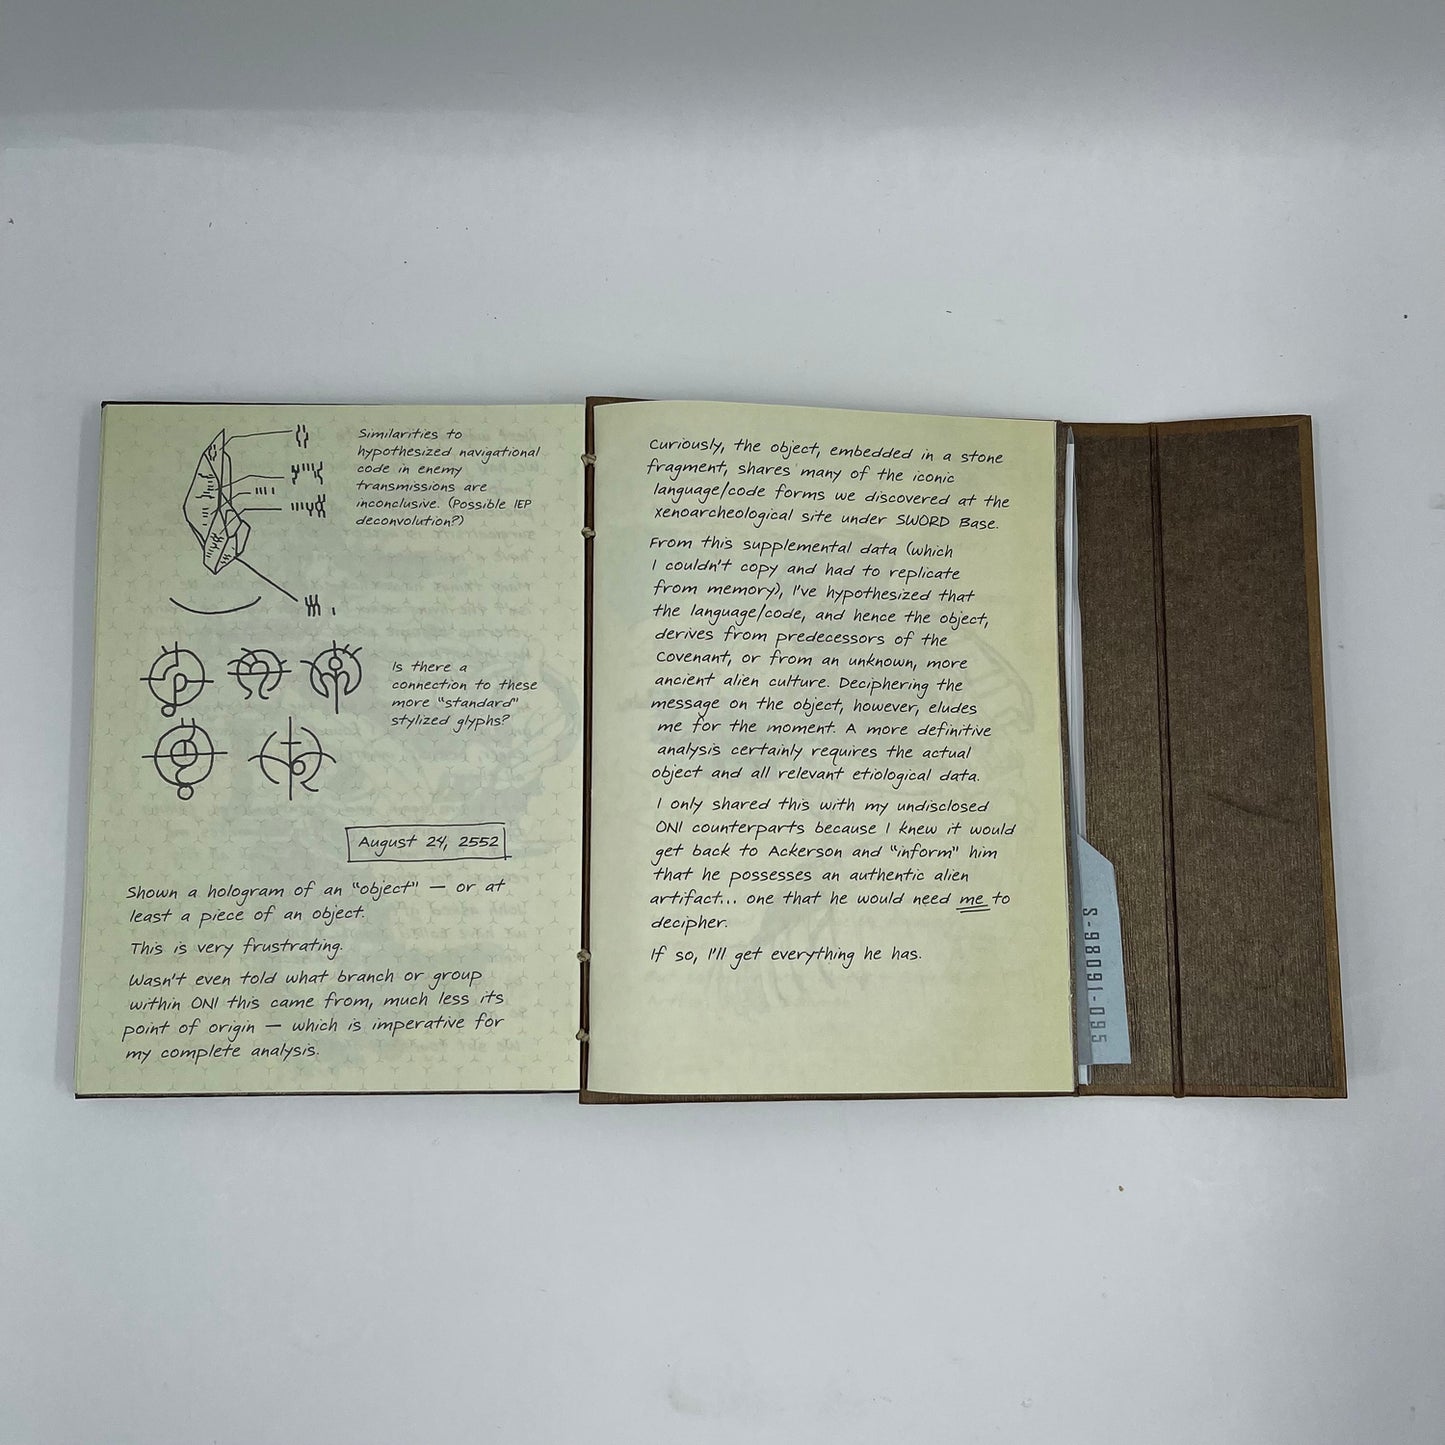 Similarities to
hypothesized navigational
code in enemy
transmissions are
inconclusive. (Possible IEP
deconvolution?)
Is there a
connection to these
more "standard"
stylized glyphs?
August 24, 2552
Shown a hologram of an "object" — or at
least a piece of an object.
This is very frustrating.
Wasn't even told what branch or group
within ONI this came from, much less its
point of origin — which is imperative for
my complete analysis.
Curiously, the object, embedded in a stone
fragment, shares many of the iconic
language/code forms we discovered at the
xenoarcheological site under SWORD Base.
From this supplemental data (which
I couldn't copy and had to replicate
from memory), I've hypothesized that
the language/code, and hence the object,
derives from predecessors of the
Covenant, or from an unknown, more
ancient alien culture. Deciphering the
message on the object, however, eludes
me for the moment. A more definitive
analysis certainly requires the actual
object and all relevant etiological data.
I only shared this with my undisclosed
ONI counterparts because I knew it would
get back to Ackerson and "inform" him
that he possesses an authentic alien
artifact... one that he would need me to
decipher.
If so, I'll get everything he has.
S-98091-1095